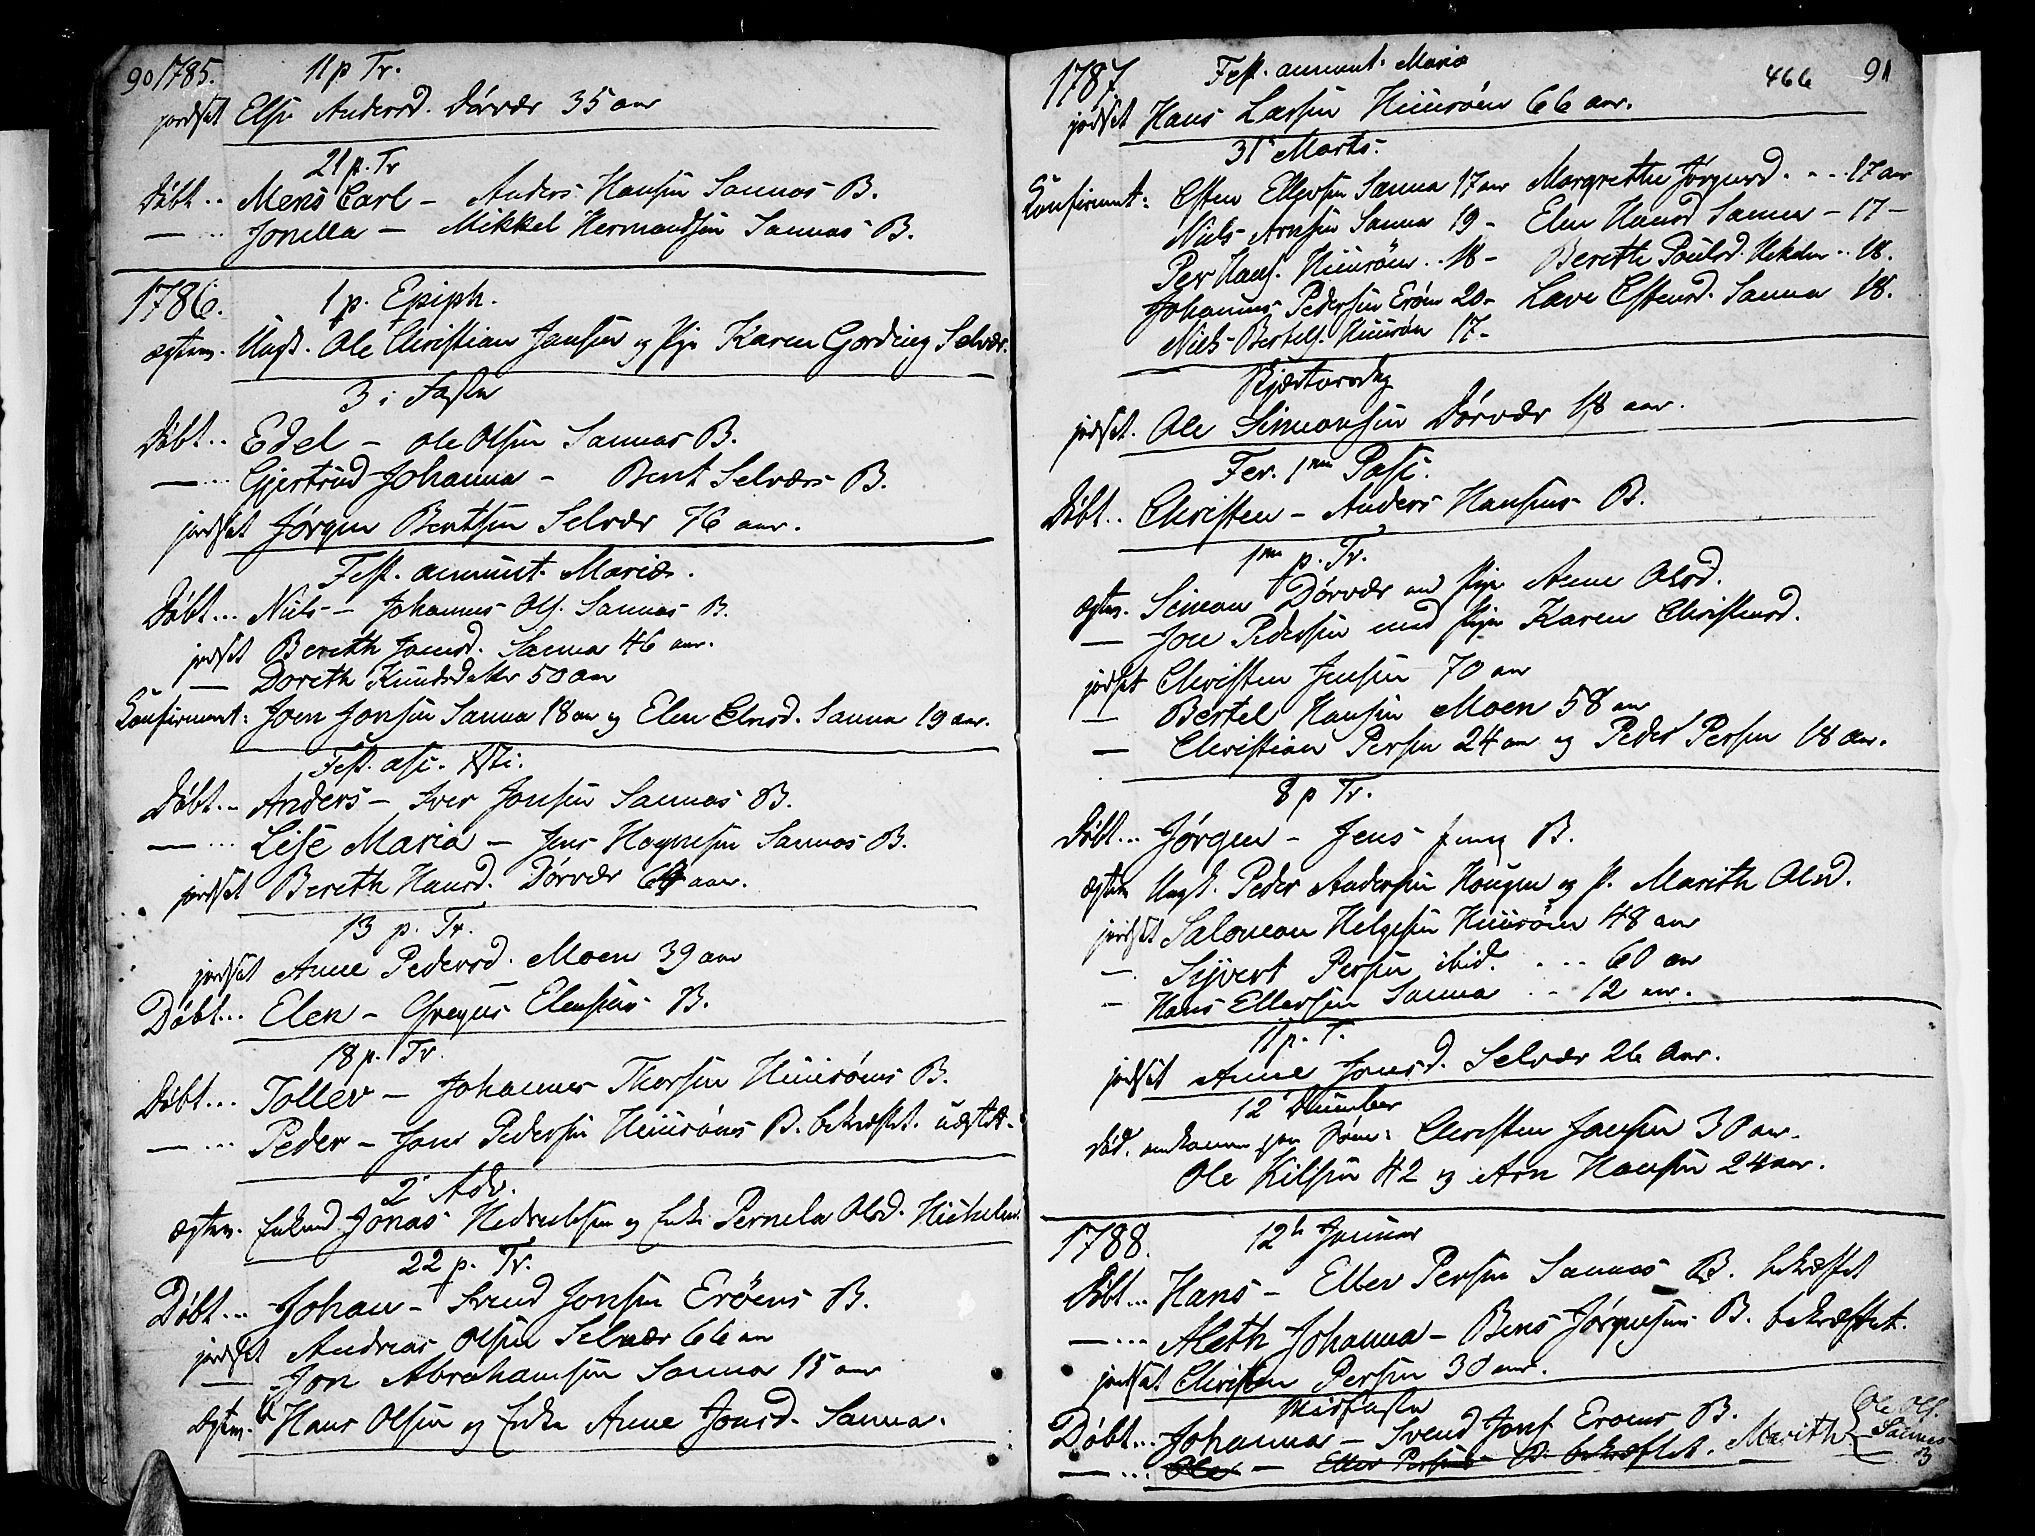 90 1785. 11 p Tr.
jordset Else Andersd. Dørvær 35 aar
21 p. Tr
Døbt .. Mens Carl – Anders Hansen Sannas B.
— .. Jonella — Mikkel Hermandsen Sannas B.
1786. 1 p. Epiph.
ægtev. Ungk. Ole Christian Jensen og Pige Karen Gording Selvær.
3 i Faste
Døbt .. Edel – Ole Olsen Sannas B.
— ... Gjertrud Johanna – Bent Selværs B.
jordset Jørgen Bentsen Selvær 76 aar.
Fest. annunt. Mariæ.
Døbt ... Niels – Johannes Ols. Sannas B.
jordset Bereth Jansd. Sanna 46 aar.
— Doreth Knudsdatter 50 aar
Confirmert: Joen Jonsen Sanna 18 aar og Elen Elversd. Sanna 19 aar.
Fest. asc. Xsti.
Døbt .. Anders – Iver Jonsen Sannas B.
— ... Lise Maria – Jens Hagensen Sannas B.
jordset Bereth Hansd. Dørvær 64 aar.
13 p. Tr.
jordset Anne Pedersd. Moen 39 aar
Døbt ... Elen – Gregus Elensens B.
18 p. Tr.
Døbt ... Tollev – Johannes Thorsen Huusøens B.
— ... Peder – Jens Pedersen Huusøens B. bekræftet. uægte
2. Adv.
ægtev. Enkemd Jonas og Enke Pernela Olsd.
22 p. Tr.
Døbt ... Johan – Svend Jonsen Erøens B.
jordset Andreas Olsen Selvær 66 aar
— Jon Abrahamsen Sanna 15 aar
ægtev. Hans Olsen og Enke Anne Jonsd. Sanna.
1787 Fest. annunt. Mariæ 466 91
jordset Hans Larsen Huusøen 66 aar.
31 Marts.
Confirmert: Esten Ellevsen Sanna 17 aar Margrethe Jørgensd. . - .. 17 aar
Niels Arnsen Sanna 19 – Elen Hansd Sanna – 17 –
Per Hans. Huusøen .. 18 – Bereth Poulsd. .. 18.
Johannes Pedersen Erøen 20 – Lave Estensd. Sanna 18.
Niels Bertels. Huusøen 17 –
Skjærtorsdag
jordset. Ole Simonsen Dørvær 18 aar.
Fer. 1ma Pasc.
Døbt .. Christen – Anders Hansens B.
1ma p. Tr.
ægtev. Simon Dørvær md Pige Anne Olsd.
— Jon Pedersen med Pige Karen Christensd.
jordset Christen Jensen 70 aar
— Bertel Hansen Moen 58 aar
— Christian Persen 24 aar og Peder Persen 18 aar.
8 p Tr.
Døbt ... Jørgen – Jens B.
ægtev Ungk. Peder Andersen Hougen og P. Marith Olsd.
jordset Salomon Helgesen Huusøen 48 aar
— Syvert Persen ibid. . - .. 60 aar
– Hans Ellevsen Sanna .. - 12 aar.
11 p. T.
jordset Anne Jonsd. Selvær 26 Aar.
12 December
Død. omkomne paa Søen: Christen Jansen 30 aar.
Ole Kilsen 42 og Arn Hansen 24 aar.
1788. 12te Januar
Døbt ... Hans – Ellev Persen Sannas B. bekræftet
— ... Aleth Johanna – Bens Jørgensens B. bekræftet.
jordset. Christen Persen 30 aar.
Midfaste
Døbt ... Johanna – Svend Jons. Eroens B.
— ... Ole – Ellev Persens B. bekræftet. Marith { Ole Ols. Sannas B